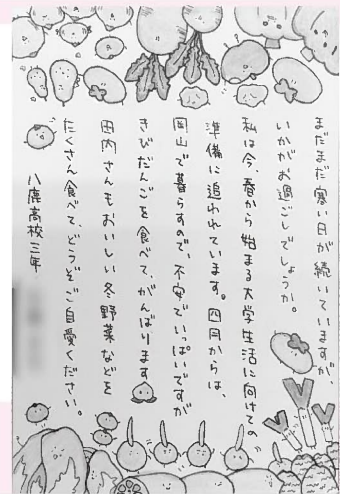 まだまだ寒い日が続いていますが、
いかがお過ごしでしょうか。
私は今、春から始まる大学生活に向けての
準備に追われています。四月からは、
岡山で暮らすので、不安でいっぱいですが
きびだんごを食べて、がんばります
田内さんもおいしい冬野菜などを
たくさん食べて、どうぞご自愛ください。
八鹿高校三年